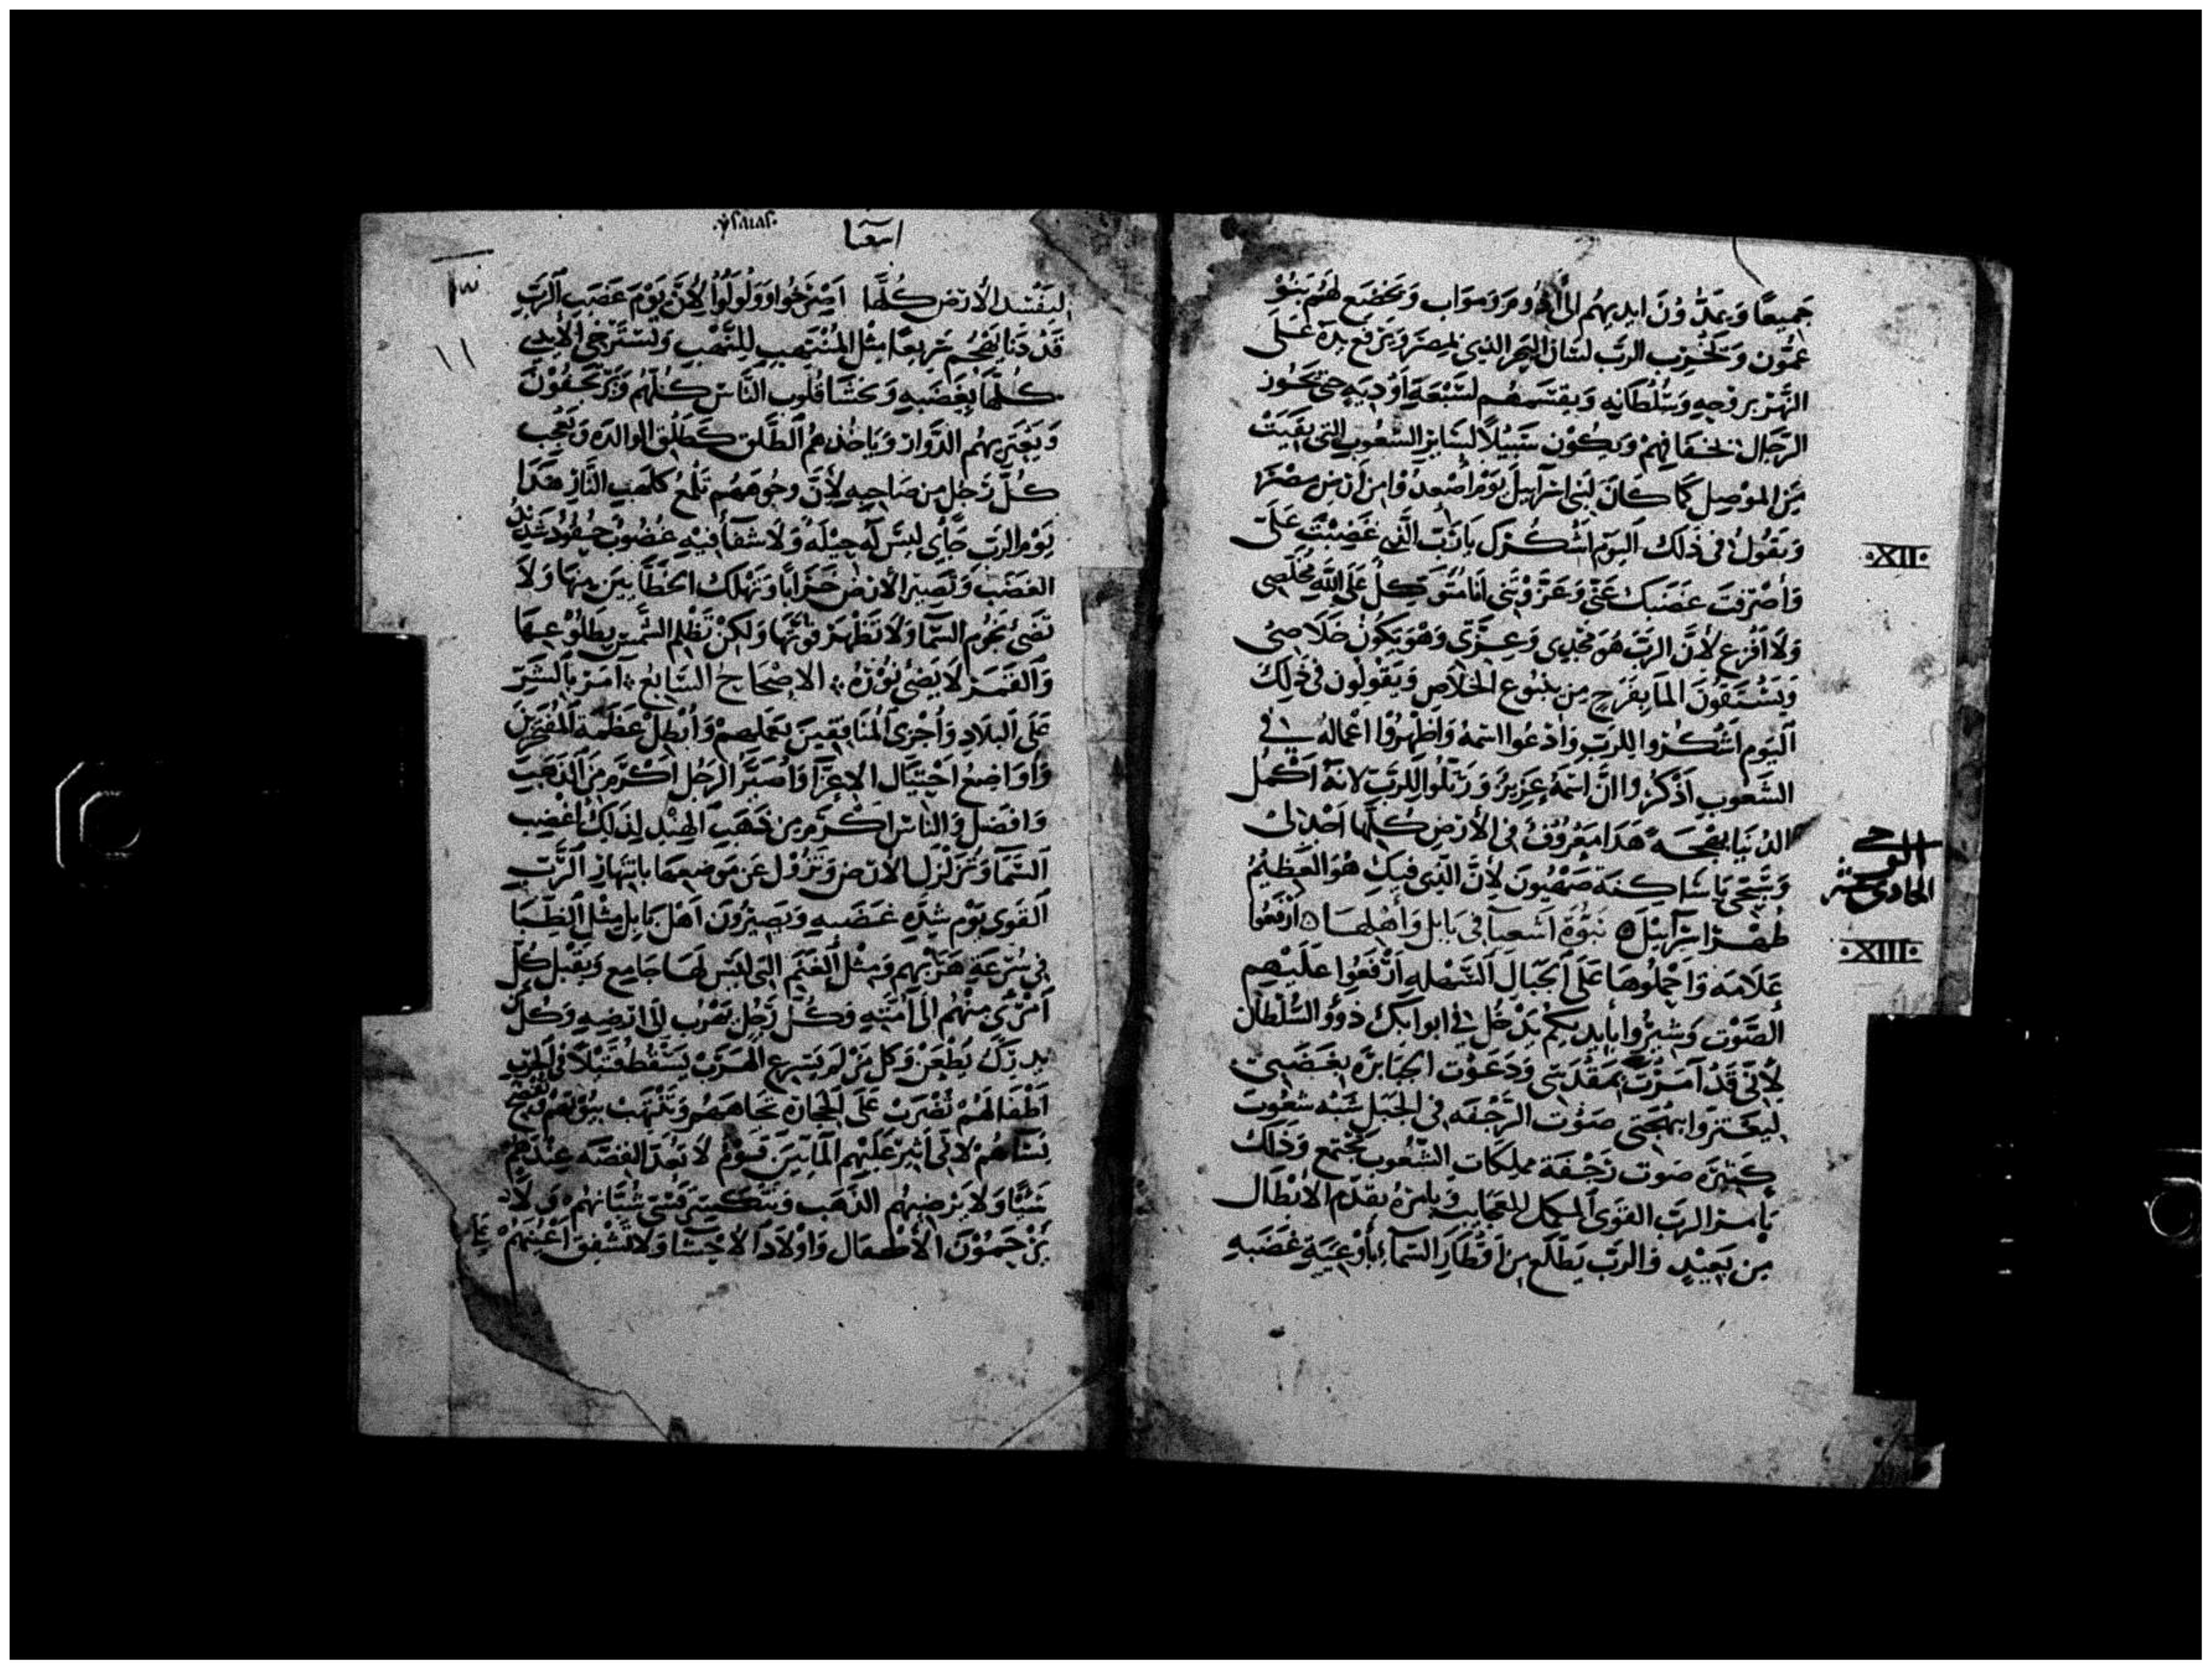 جَمِيعًا وَيَمُدُّونَ ايديهُم الى ادُومَ وَمَوَاب وَيَخْضَع لهُم بَنُوْ
عَمُّون وَيُخْرِب الرب لسَانَ البَحِر الذِي بمِصَرَ وَيَرْفَع يدهُ عَلى
النَّهَرْ بروحِهِ وَسُلْطَانِهِ وَيقسَمهُم لسَبْعَةِ اوْديَهٍ حَتى يَجُوز
الرّجَال بخفَافِهمْ وَيكُوْن سَبيْلاً لسَايرِ الشعُوب التي بَقِيَتْ
مِنَ الموْصِل كَمَا كَانَ لِبَنِي اسْرَاييلَ يَوْمَ اصْعِدُوْا مِن ارْضِ مِصْرَ
وَيَقُولُ في ذَلكَ اليَوْم اشْكُرْكَ يَا رَبّ الَّذِي غَضِبْتَ عَلَي
وَأصْرَفتَ غَضَبَكَ عَنّي وَعَزَّوْتَنَي أنَا مُتَوَكِلٌ عَلَى اللَّهِ مُخَلّصِي
وَلاَ افْزَع لأَنَّ الربّ هُوَ مَجْدِي وَعِزَّتي وَهُوَ يَكُونُ خَلاَصِيْ
وَيَسْتَقُونَ المَا بِفَرَحٍ مِن يَنبُوع الخلاَصِ وَيَقُوْلُون في ذلِكَ
اليَوم اشكُرُوا للربّ وَادْعُوا اسْمهُ وَاظهِرُوْا اعْمالهُ في
الشعُوبِ اذْكُرُوا انَّ اسْمَهُ عَزِيزٌ وَرَتّلُوا للرَّبِّ لانَهُ اكْمل
الدُنيَا ببَهْجَه هَذَا مَعْرُوفٌ في الأَرْضِ كُلّهَا
وَسَبّحي يَا سَاكِنَة صَهيُونَ لأنَّ الذِي فيكِ هُوَ العَظِيمُ
طُهْرُ اسْرَآييلَ نبُوَّة اشعيَآ في بَابل وَأهْلِهَا ارْفَعُوا
عَلاَمَه وَاحْمِلُوهَا عَلَى الجبَال السَّهْلهِ ارْفَعُوا عَلَيْهِم
الصَّوْت وَشيرُوا بأيديكُم يَدْخُل في ابوابكَ ذوُو السُّلْطَان
لأَنّي قَدْ أمَرْتُ بمقْدَسي وَدَعَوْت الجبَابرَه بغَضَبي
ليعتزوا ببَهْجَتي صَوْت الرَّجْفَه في الجَبَل شبْه شعُوب
كَثيرَه صَوت رَجْفَة مملكات الشعُوب تجْتمَع وَذَلكَ
يأمُر الربّ القَوي المكمل للعجايب وَيامرهُ بقدّم الابْطَال
مِن بَعِيْدٍ وَالربّ يَطّلع مِن اقْطَارِ السَّمَاءِ بأوْعِيَةِ غَضَبهِ
·XII·
الوحي
الحادي عشر
·XIII·
اشعيا
١٣
١١
ليَفْسِدَ الأرْضَ كُلَّهَا اصْرَخُوا وَوَلْوِلُوْا لأِنَّ يَوْمَ غَضَبِ الرّبّ
قَدْ دَنَا يَهْجُم سَرِيعًا مِثْل المُنْتَهِبِ للنَّهْب وَتَسْتَرْخي الأَيْدي
كُلّهَا بغَضَبهِ وَتَخشَا قلُوب النَّاس كُلّهُم وَيَرْجُفُوْنَ
وَيَعْتَرِيهُم الدّوَار وَيَاخُذهُم الطَّلق كَطَلْق الوَالِدَه وَيَعْجب
كُلُّ رَجُلٍ مِن صَاحِبهِ لأنَّ وجُوهَهُم تَلْمَعُ كلَهَبِ النَّار هَذَا
يَوْم الرَّب جَآي لَيسَ لَه حِيْلَه وَلاَ شفَآ فيْهِ غضُوبٌ حقُودٌ شَدِيدُ
الغَضَب وَتَصِير الأرْض خَرَابًا وَتَهلكُ الخطَّايينَ مِنهَا وَلاَ
تضيُ نجُوْم السَّمَا وَلاَ تَظْهَرُ قوّتهَا وَلكِنْ تظْلِم الشَّمْس بطلُوْعِهَا
وَالقَمَر لاَ يَضيُ نوْرَهُ الاصْحَاح السَّابعُ آمَر بالشَرّ
عَلَى البلاَدِ وَأجْزي المُنَافِقِينَ بعَملهمْ وَأبْطِلْ عَظَمَة المُفْتَخِرين
وَاوَاضعُ احْتيَال الاعِزآ وَأصَيّر الرَجُل اكْرَمُ مِنَ الذهَبِ
وَافضَل وَالنَاس اكْرَمَ مِن ذهَبِ الهِنْد لذلكَ أغْضِب
السَّمَا وَتُزَلْزَلْ الأرض وَتَزوْل عَن مَوضِعِهَا بانتهَارِ الرَّبّ
القَوي يَوْم شِدّه غَضَبهِ وَيَصِيرُونَ اهْل بَابِل مِثْل الظِبَا
في سُرْعَةِ هَرَبهم وَمِثْل الغَنَم التي لَيْسَ لَهَا جَامِع وَيُقْبل كل
امْرئٍ مِنْهُم الَى امَّتهِ وَكُلُّ رَجُلٍ يَهْرُب إلى ارضِهِ وَكُلّ مَنْ
يدرَكُ يُطْعَنْ وَكل مَنْ لم يُسْرِع الهَرَبْ يَسْقُط قتيْلاً في الحَرْب
أطْفَالَهُمْ تُضْرَبْ عَلَى الحجَارَه تجَاهَهُم وَتُنْهَبْ بيُوتهُم وَتفضَح
نسَآهُم لأنّي أثيرُ عَليْهِم المَآييْنَ قَوْمٌ لاَ تعَدّ الفضَّه عِنْدَهُم
شَيْئًا وَلاَ يَرْضِيهُم الذَّهَب وَتَتكَسَّر قسْيَ شبَّانهُمْ وَلاَ
يَرْحَمُوْنَ الأَطْفَال وَاوْلاَد الاحْشَا وَلاَ تشْفِق أعْيُنهُمْ عَلى